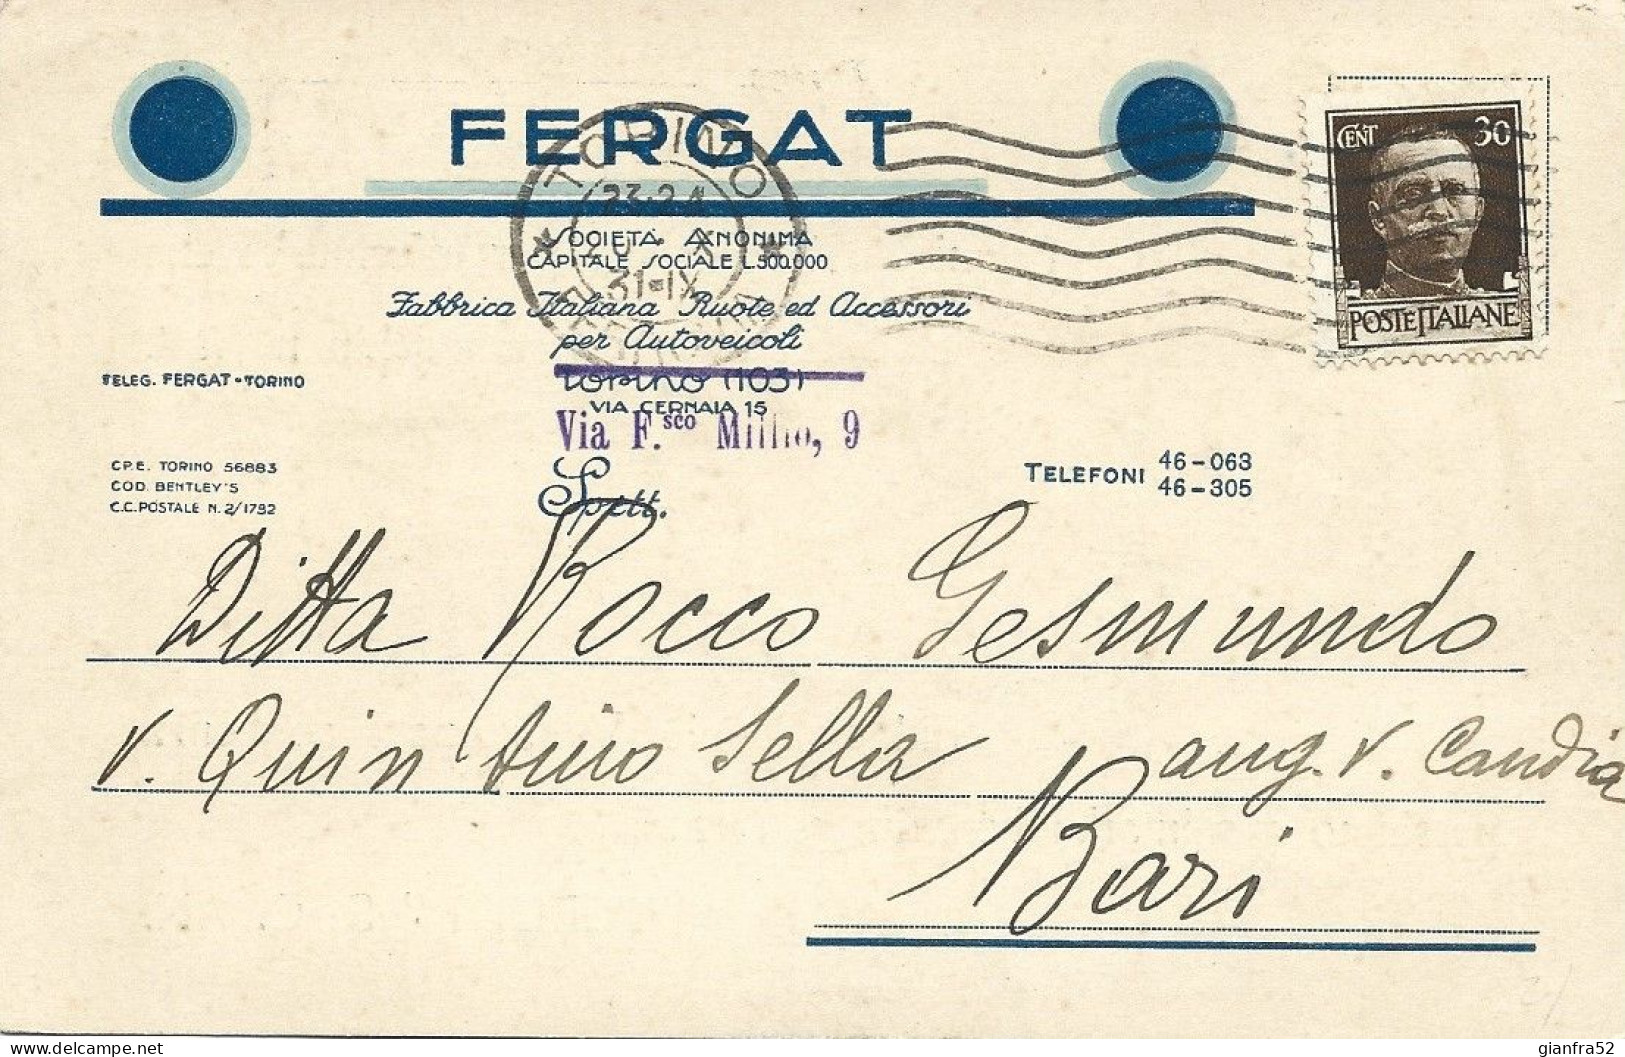 FERGAT
CENT 30
POSTE ITALIANE
TORINO
23-24
31-IX
SOCIETÀ ANONIMA
CAPITALE SOCIALE L.500.000
Fabbrica Italiana Ruote ed Accessori
per Autoveicoli
TELEG. FERGAT-TORINO
Torino (103)
VIA CERNAIA 15
Via F.sco Millio, 9
CP.E. TORINO 56883
COD. BENTLEY'S
C.C. POSTALE N. 2/1792
TELEFONI 46-063
46-305
Spett.
Ditta Rocco Gesmundo
v. Quintino Sella ang. v. Candia
Bari
Delcampe.net
gianfra52